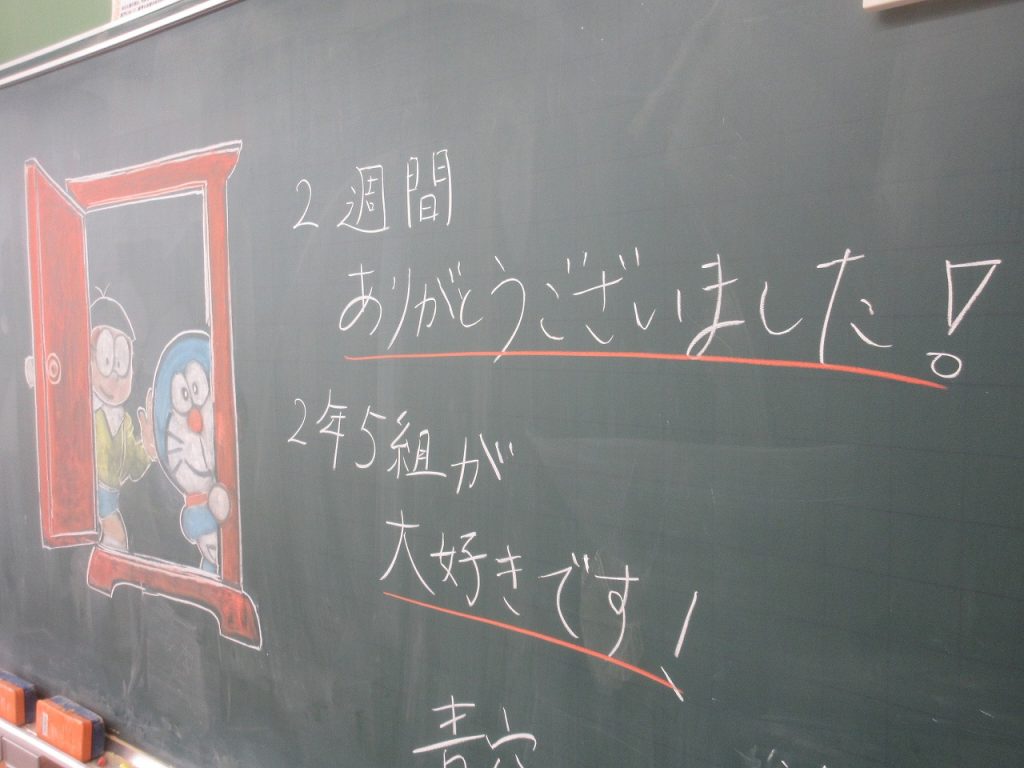 2週間
ありがとうございました!
2年5組が
大好きです!